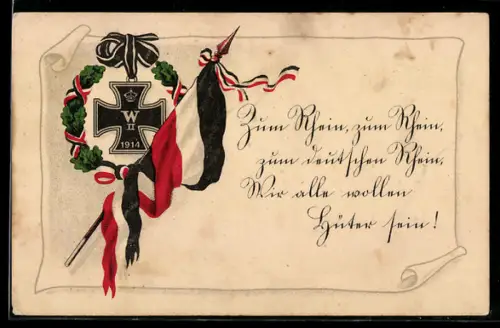 W
II
1914
Zum Rhein, zum Rhein,
zum deutschen Rhein,
Wir alle wollen
Hüter sein!